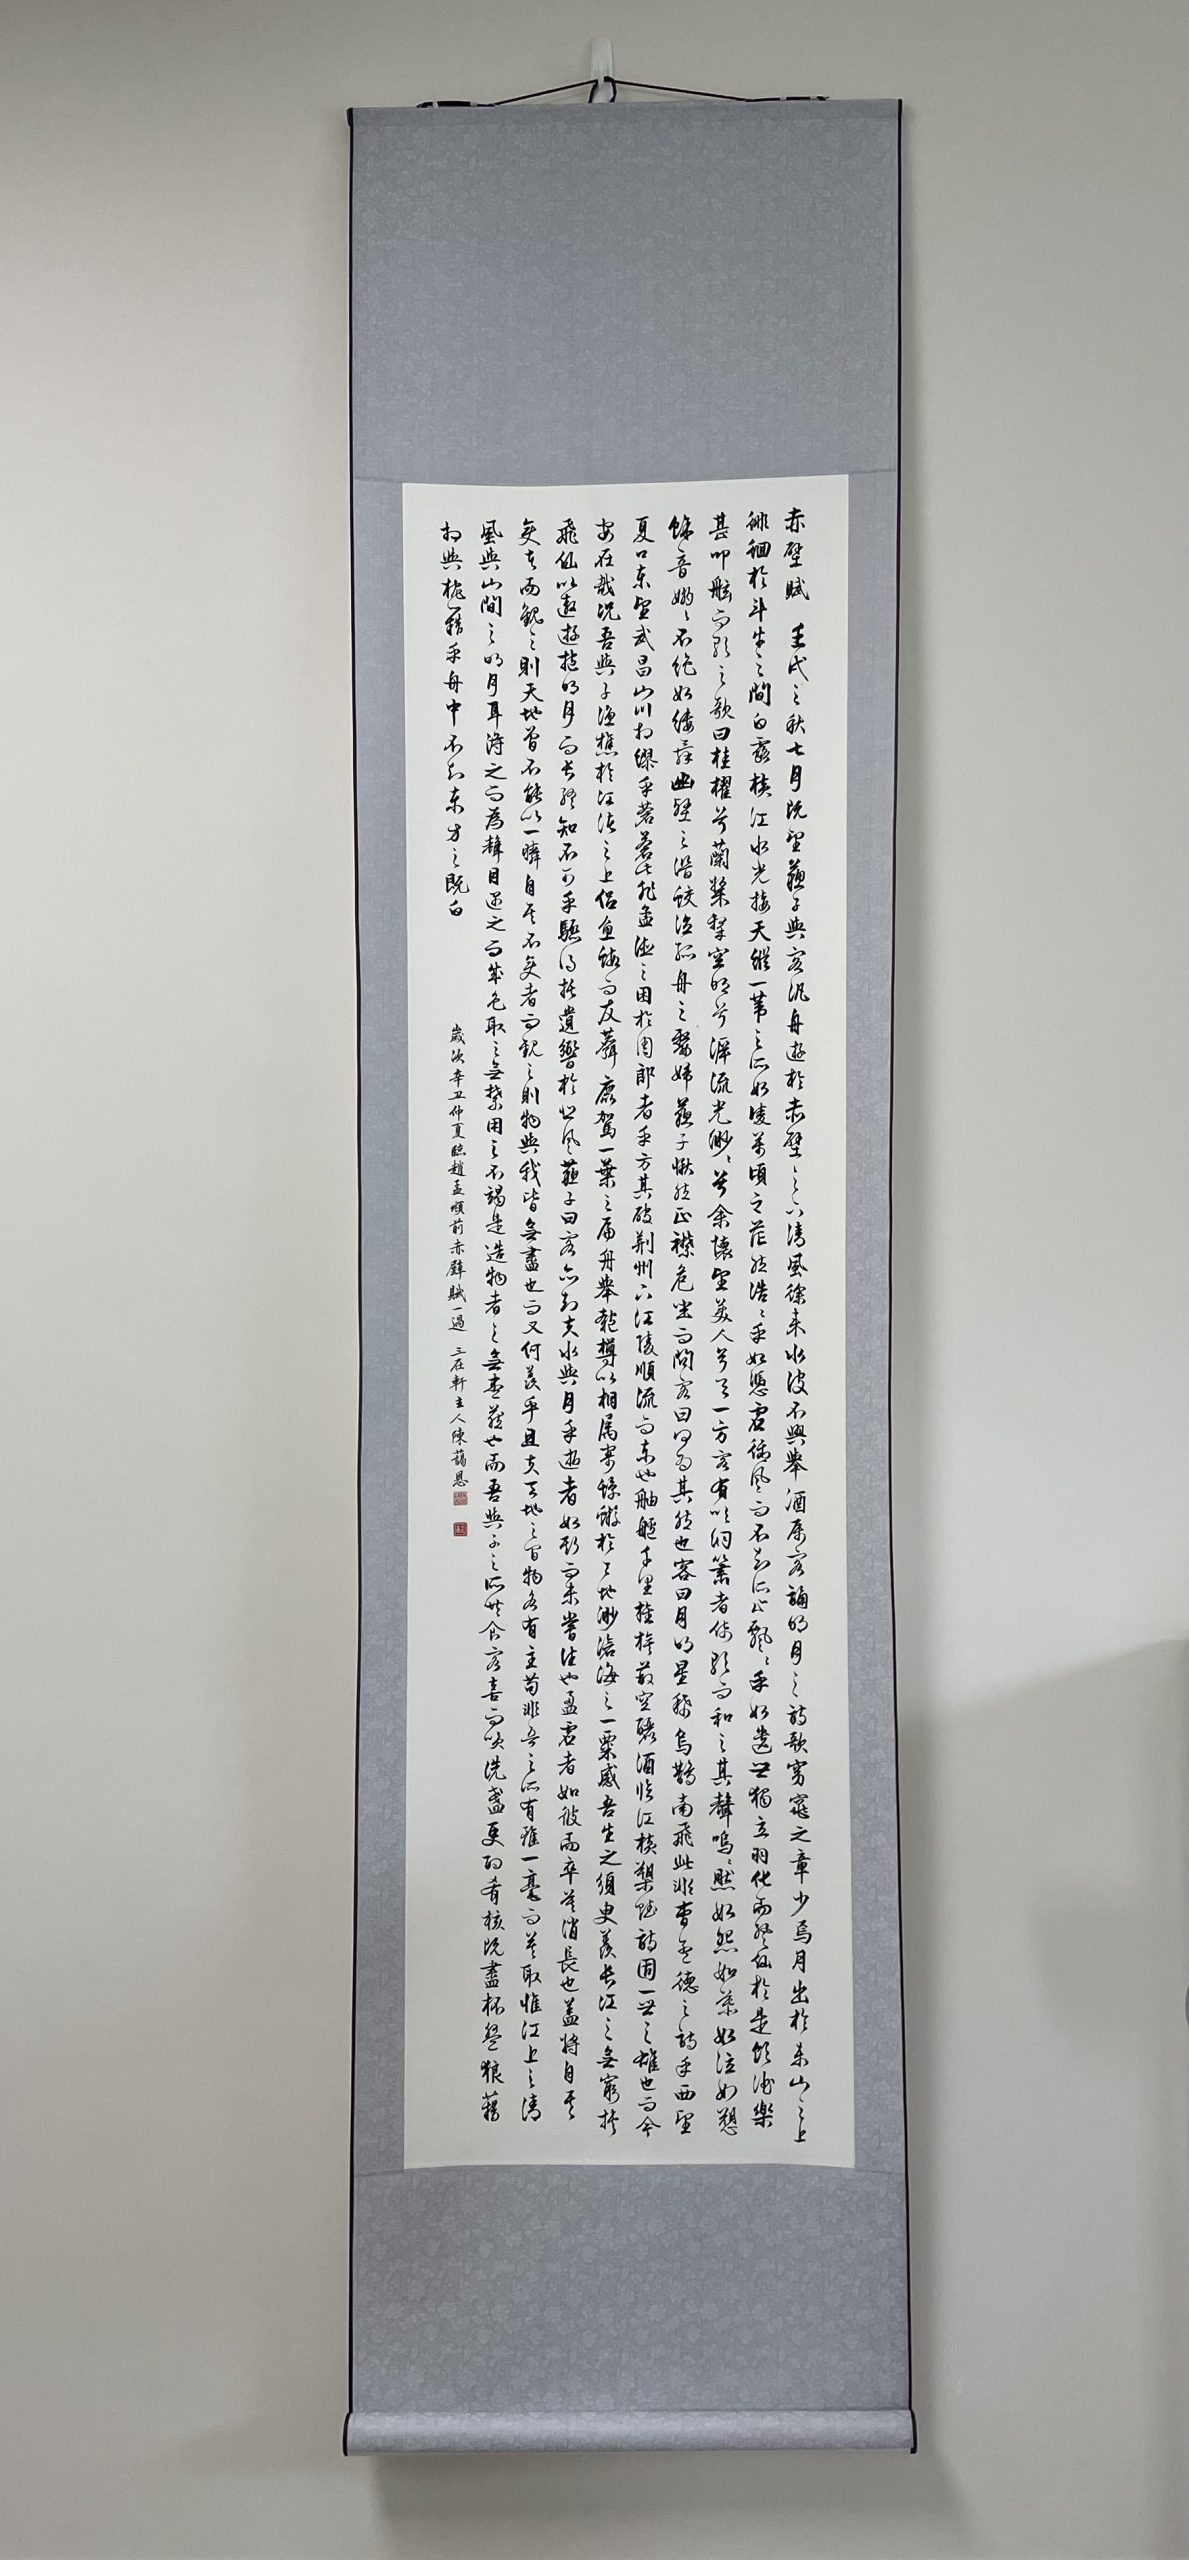 赤壁賦　壬戌之秋七月既望蘇子與客泛舟遊於赤壁之下清風徐來水波不興舉酒屬客誦明月之詩歌窈窕之章少焉月出於東山之上
徘徊於斗牛之間白露橫江水光接天縱一葦之所如陵萬頃之茫然浩浩乎如憑虛御風而不知所止飄飄乎如遺世獨立羽化而登仙於是飲酒樂
甚叩舷而歌之歌曰桂櫂兮蘭槳擊空明兮泝流光渺渺兮余懷望美人兮天一方客有吹洞簫者倚歌而和之其聲嗚嗚然如怨如慕如泣如愬
餘音嫋嫋不絕如縷舞幽壑之潛蛟泣孤舟之嫠婦蘇子愀然正襟危坐而問客曰何為其然也客曰月明星稀烏鵲南飛此非曹孟德之詩乎西望
夏口東望武昌山川相繆乎蒼蒼此非孟德之困於周郎者乎方其破荊州下江陵順流而東也舳艫千里旌旗蔽空釃酒臨江橫槊賦詩固一世之雄也而今
安在哉況吾與子漁樵於江渚之上侶魚蝦而友麋鹿駕一葉之扁舟舉匏樽以相屬寄蜉蝣於天地渺滄海之一粟感吾生之須臾羨長江之無窮挾
飛仙以遨遊抱明月而長終知不可乎驟得托遺響於悲風蘇子曰客亦知夫水與月乎逝者如斯而未嘗往也盈虛者如彼而卒莫消長也蓋將自其
變者而觀之則天地曾不能以一瞬自其不變者而觀之則物與我皆無盡也而又何羨乎且夫天地之間物各有主苟非吾之所有雖一毫而莫取惟江上之清
風與山間之明月耳得之而為聲目遇之而成色取之無禁用之不竭是造物者之無盡藏也而吾與子之所共食客喜而笑洗盞更酌肴核既盡杯盤狼藉
相與枕藉乎舟中不知東方之既白
歲次辛丑仲夏臨趙孟頫前赤壁賦一過　三在軒主人陳藹恩